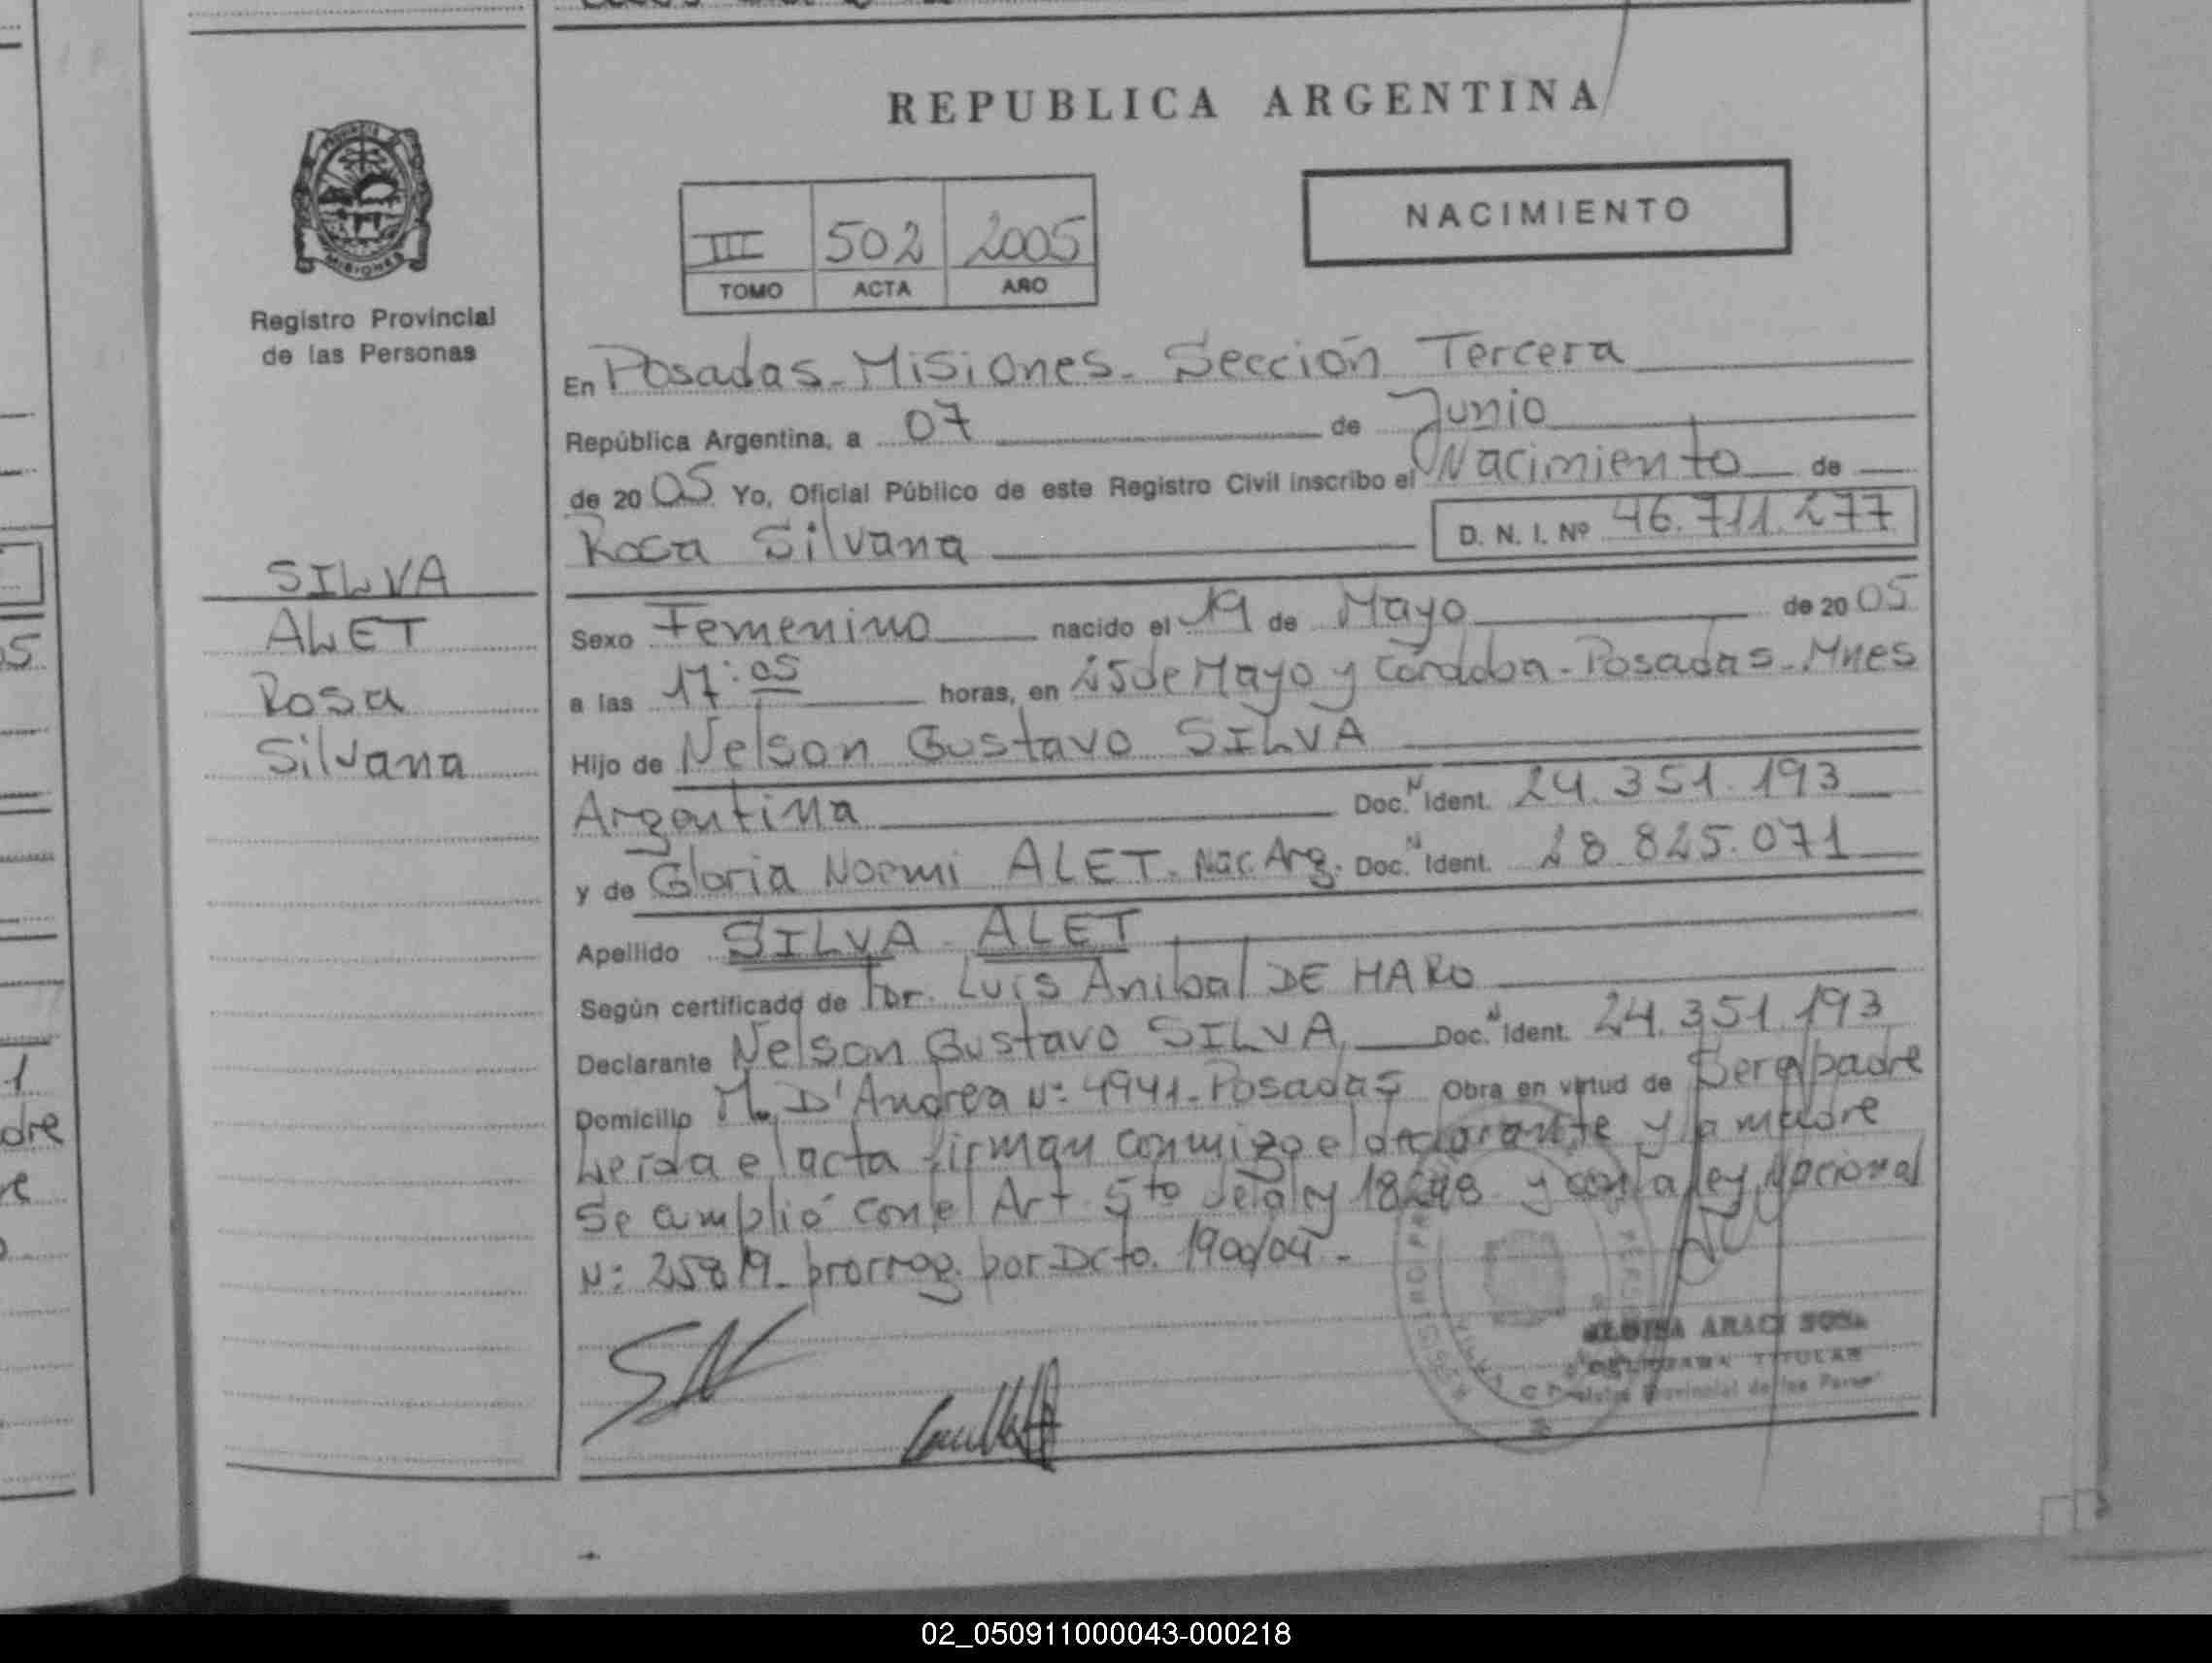 REPUBLICA ARGENTINA
PROVINCIA
MISIONES
Registro Provincial
de las Personas
III 502 2005
TOMO ACTA AÑO
NACIMIENTO
En Posadas-Misiones-Sección Tercera
República Argentina, a 07 de Junio
de 2005 Yo, Oficial Público de este Registro Civil inscribo el Nacimiento de
Rosa Silvana D. N. I. Nº 46.711.277
SILVA
ALET
Rosa
Silvana
Sexo Femenino nacido el 19 de Mayo de 2005
a las 17:05 horas, en 25 de Mayo y Córdoba-Posadas-Mnes
Hijo de Nelson Gustavo SILVA
Argentina Doc. N Ident. 24.351.193
y de Gloria Noemi ALET. Nac. Arg. Doc. N Ident. 28.825.071
Apellido SILVA - ALET
Según certificado de Dr. Luis Anibal DE HARO
Declarante Nelson Gustavo SILVA, Doc. N Ident. 24.351.193
Domicilio M. D'Andrea Nº: 4941-Posadas Obra en virtud de Ser el padre
Leida el acta firman conmigo el declarante y la madre
Se cumplió con el Art 5to de la ley 18248 y con la ley Nacional
Nº: 25819-prorrog. por Dcto. 1900/04-
ARACI SOSA
TITULAR
Provincial de las
1
dre
02_050911000043-000218